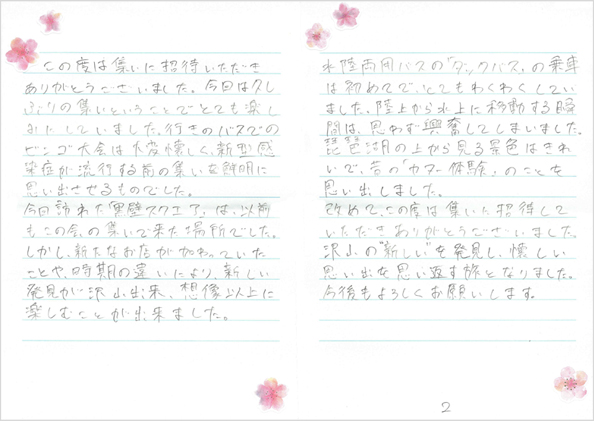 この度は集いに招待いただき
ありがとうございました。今回は久し
ぶりの集いということでとても楽し
みにしていました。行きのバスでの
ビンゴ大会は大変懐しく、新型感
染症が流行する前の集いを鮮明に
思い出させるものでした。
今回訪れた「黒壁スクエア」は、以前
もこの会の集いで来た場所でした。
しかし、新たなお店が加わっていた
ことや、時期の違いにより、新しい
発見が沢山出来、想像以上に
楽しむことが出来ました。
水陸両用バスの「ダックバス」の乗車
は初めてで、とてもわくわくしてい
ました。陸上から水上に移動する瞬
間は、思わず興奮してしまいました。
琵琶湖の上から見る景色はきれ
いで、昔の「カヌー体験」のことを
思い出しました。
改めて、この度は集いに招待して
いただきありがとうございました。
沢山の"新しい"を発見し、懐しい
思い出を思い返す旅となりました。
今後もよろしくお願いします。
2